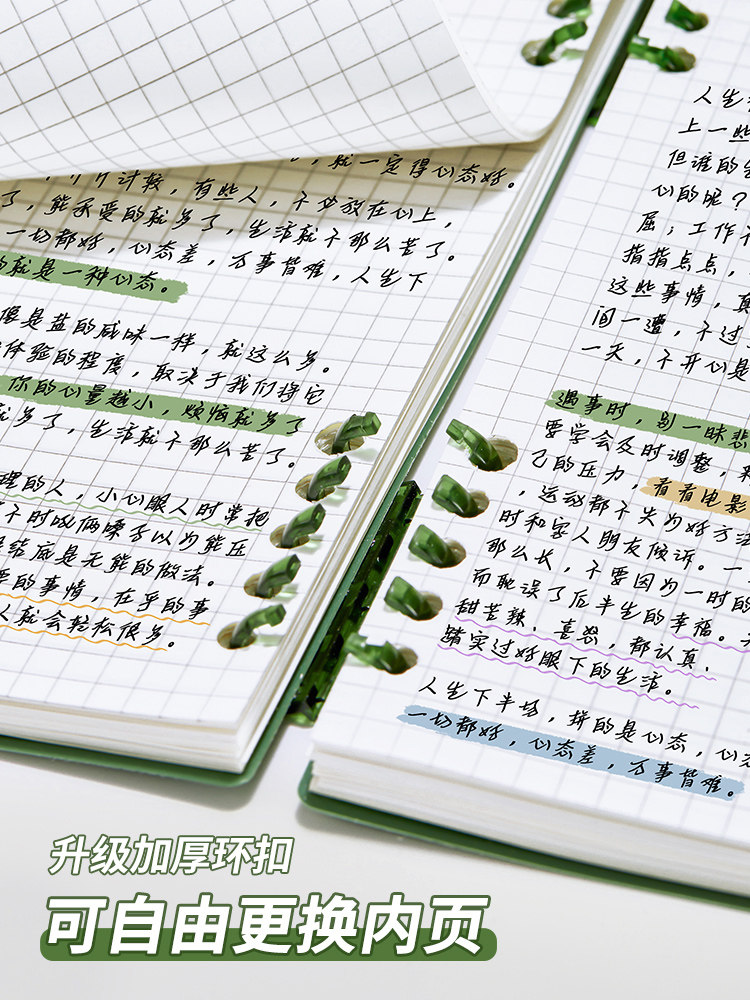 ，就一定得心态好。
计较，有些人，不必放在心上，
了，能承受的就多了，生活就不那么苦了。
一切都好，心态差，万事皆难，人生下
的就是一种心态。
像是盐的咸味一样，就这么多。
体验的程度，取决于我们将它
你的心量越小，烦恼就多了
就多了，生活就不那么苦了。
理的人，小心眼人时常把
不时吵俩嗓子以为能压
是结底是无能的做法。
的事情，在乎的事
人就会轻松很多。
人生
上一些
但谁的
心的呢？
屈；工作
指指点点，
这些事情，真
间一遭，不过
一天，不开心是
遇事时，别一昧悲
要学会及时调整，
己的压力，看看电影
，运动都不失为好方法
时和家人朋友倾诉。一
那么长，不要因为一时的
而耽误了后半生的幸福。
甜苦辣、喜怒，都认真、
踏实过好眼下的生活。
人生下半场，拼的是心态，心态
一切都好，心态差，万事皆难。
升级加厚环扣
可自由更换内页